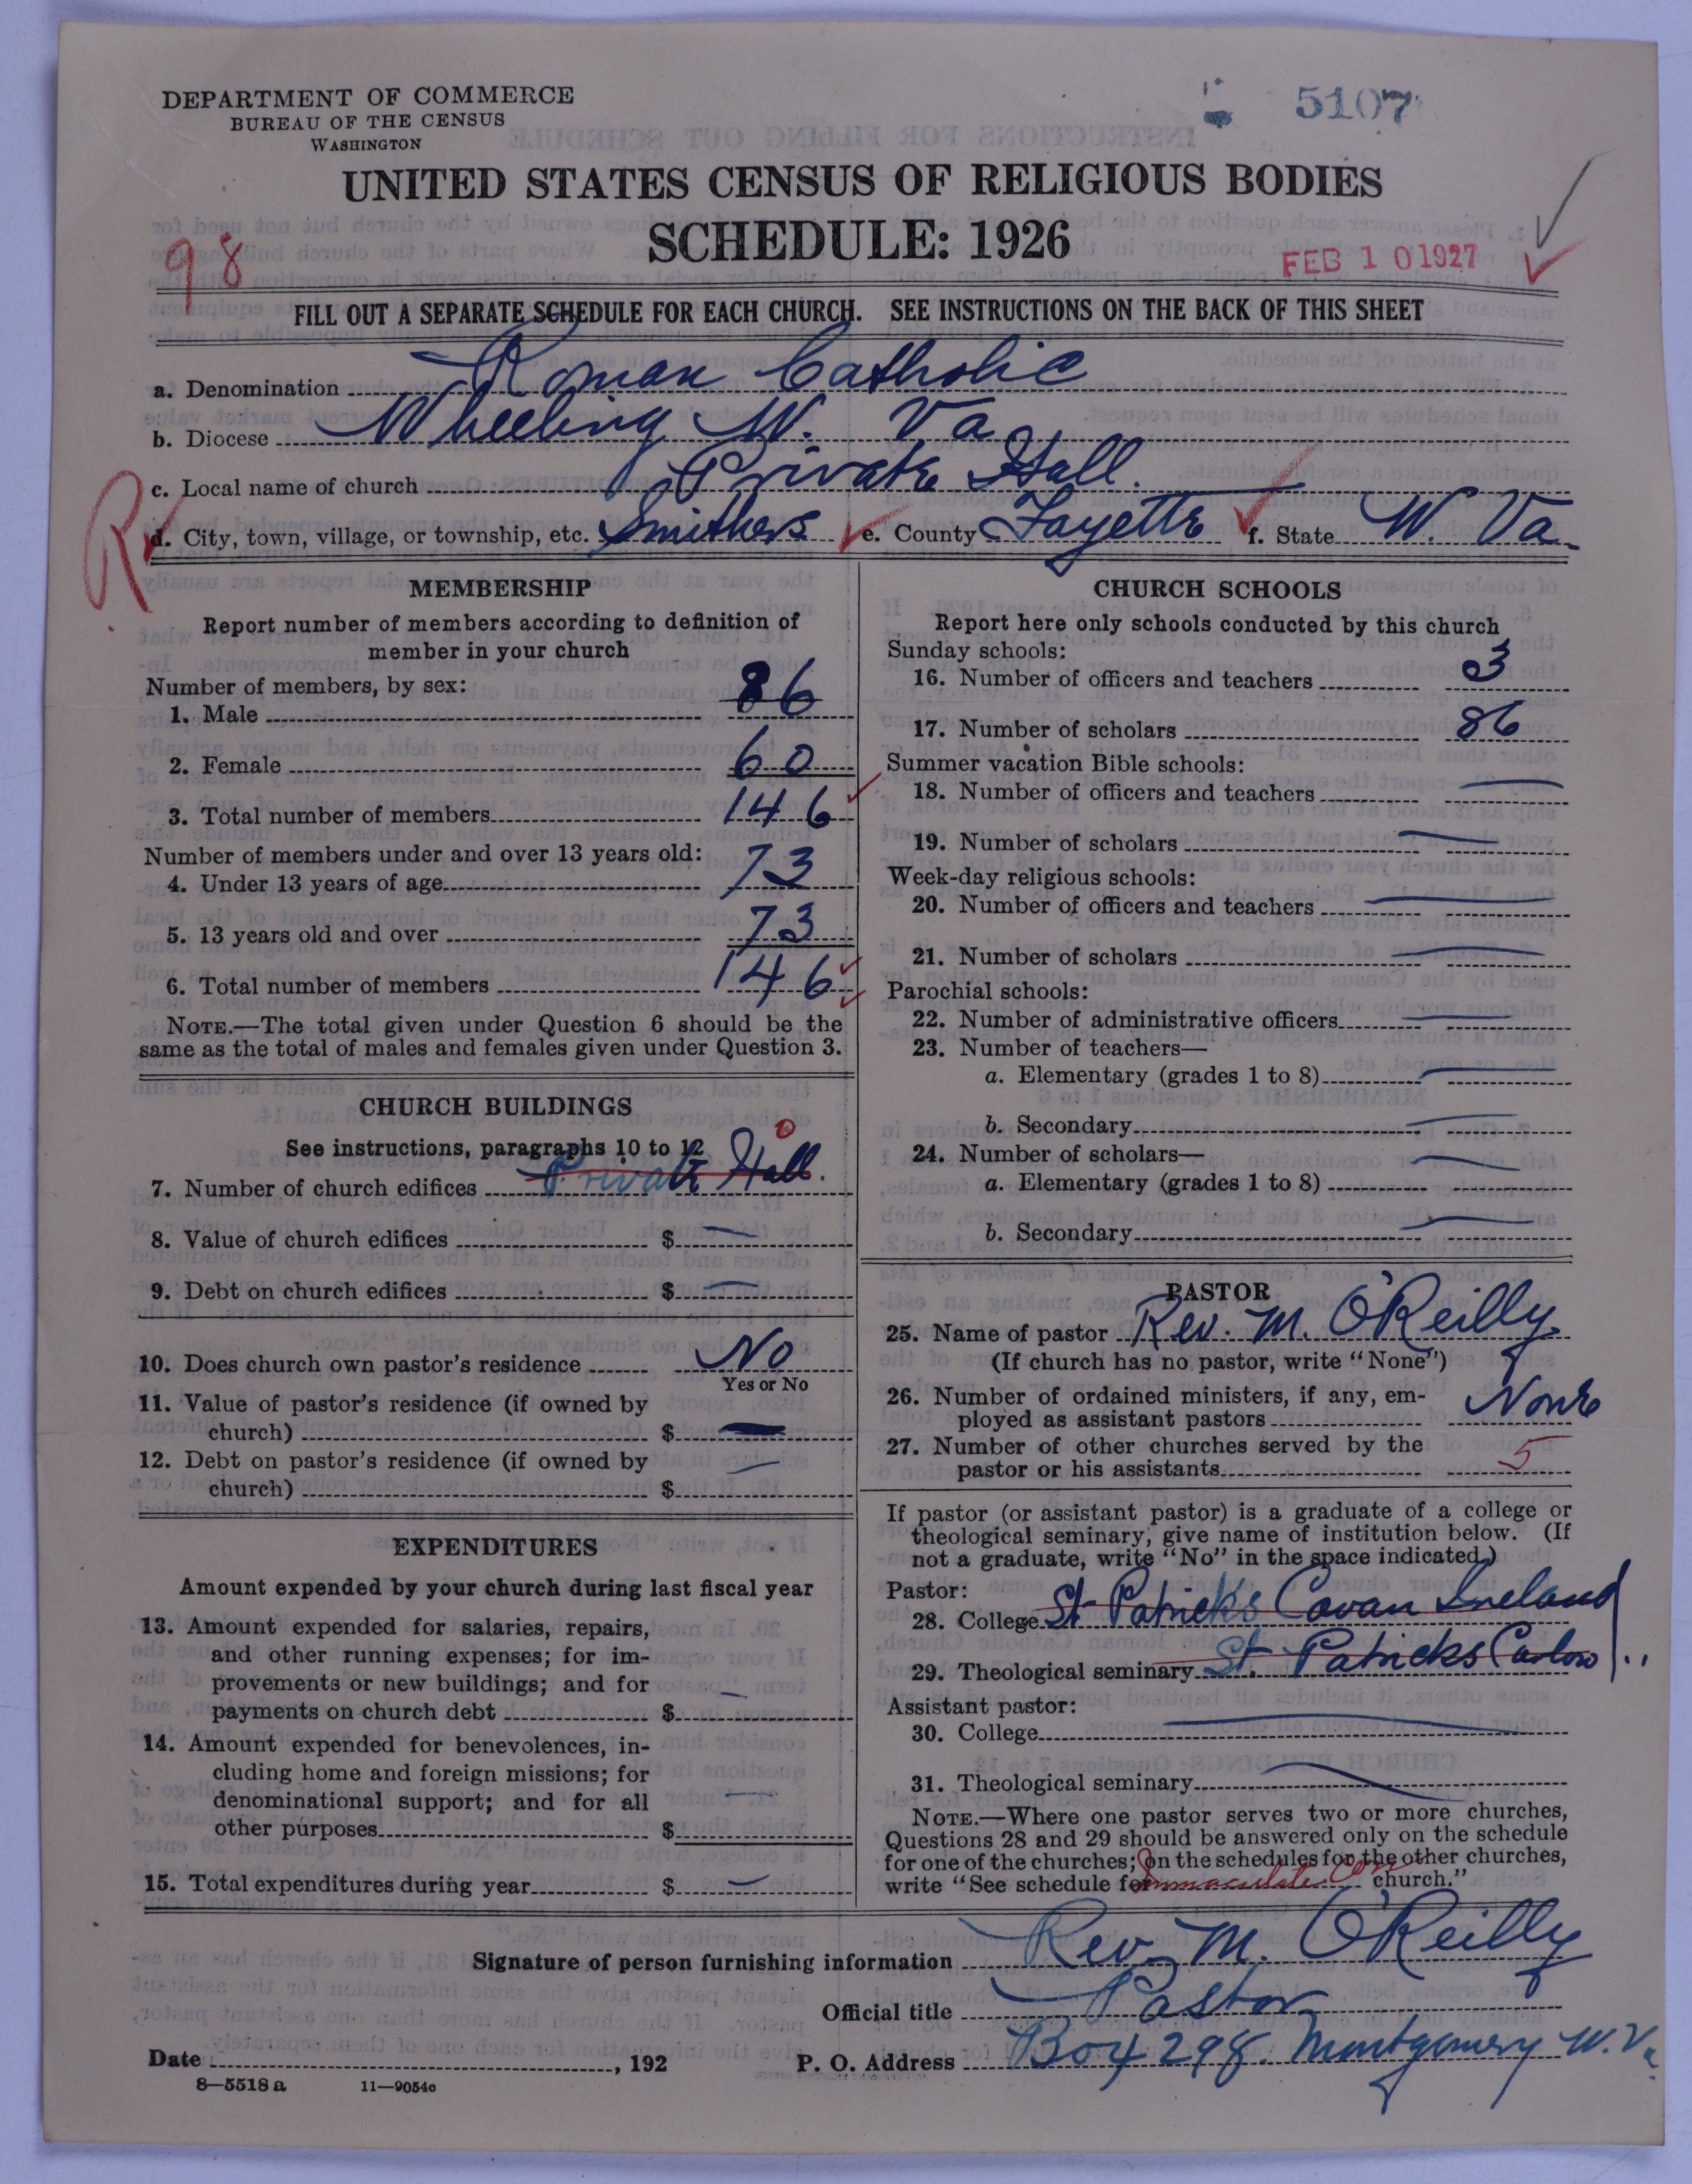 DEPARTMENT OF COMMERCE
BUREAU OF THE CENSUS
WASHINGTON
5107
UNITED STATES CENSUS OF RELIGIOUS BODIES
SCHEDULE: 1926
98
FEB 10 1927
FILL OUT A SEPARATE SCHEDULE FOR EACH CHURCH. SEE INSTRUCTIONS ON THE BACK OF THIS SHEET
a. Denomination Roman Catholic
b. Diocese Wheeling W. Va
c. Local name of church Private Hall.
R
d. City, town, village, or township, etc. Smithers e. County Fayette f. State W. Va.
MEMBERSHIP
Report number of members according to definition of
member in your church
Number of members, by sex:
1. Male 86
2. Female 60
3. Total number of members 146
Number of members under and over 13 years old:
4. Under 13 years of age 73
5. 13 years old and over 73
6. Total number of members 146
NOTE.—The total given under Question 6 should be the
same as the total of males and females given under Question 3.
CHURCH BUILDINGS
See instructions, paragraphs 10 to 12
0
7. Number of church edifices Private Hall.
8. Value of church edifices $ —
9. Debt on church edifices $ —
10. Does church own pastor's residence No
Yes or No
11. Value of pastor's residence (if owned by
church) $ —
12. Debt on pastor's residence (if owned by
church) $ —
EXPENDITURES
Amount expended by your church during last fiscal year
13. Amount expended for salaries, repairs,
and other running expenses; for im-
provements or new buildings; and for
payments on church debt $ —
14. Amount expended for benevolences, in-
cluding home and foreign missions; for
denominational support; and for all
other purposes $ —
15. Total expenditures during year $ —
CHURCH SCHOOLS
Report here only schools conducted by this church
Sunday schools:
16. Number of officers and teachers 3
17. Number of scholars 86
Summer vacation Bible schools:
18. Number of officers and teachers —
19. Number of scholars —
Week-day religious schools:
20. Number of officers and teachers —
21. Number of scholars —
Parochial schools:
22. Number of administrative officers —
23. Number of teachers—
a. Elementary (grades 1 to 8) —
b. Secondary —
24. Number of scholars—
a. Elementary (grades 1 to 8) —
b. Secondary —
PASTOR
25. Name of pastor Rev. M. O'Reilly
(If church has no pastor, write "None")
26. Number of ordained ministers, if any, em-
ployed as assistant pastors None
27. Number of other churches served by the
pastor or his assistants 5
If pastor (or assistant pastor) is a graduate of a college or
theological seminary, give name of institution below. (If
not a graduate, write "No" in the space indicated.)
Pastor:
28. College St Patricks Cavan Ireland
29. Theological seminary St. Patricks Carlow
Assistant pastor:
30. College —
31. Theological seminary —
NOTE.—Where one pastor serves two or more churches,
Questions 28 and 29 should be answered only on the schedule
for one of the churches; on the schedules for the other churches,
write "See schedule for Immaculate Con church."
Signature of person furnishing information Rev. M. O'Reilly
Official title Pastor
Date , 192 P. O. Address Box 298. Montgomery W. Va.
8—5518 a 11—9054c